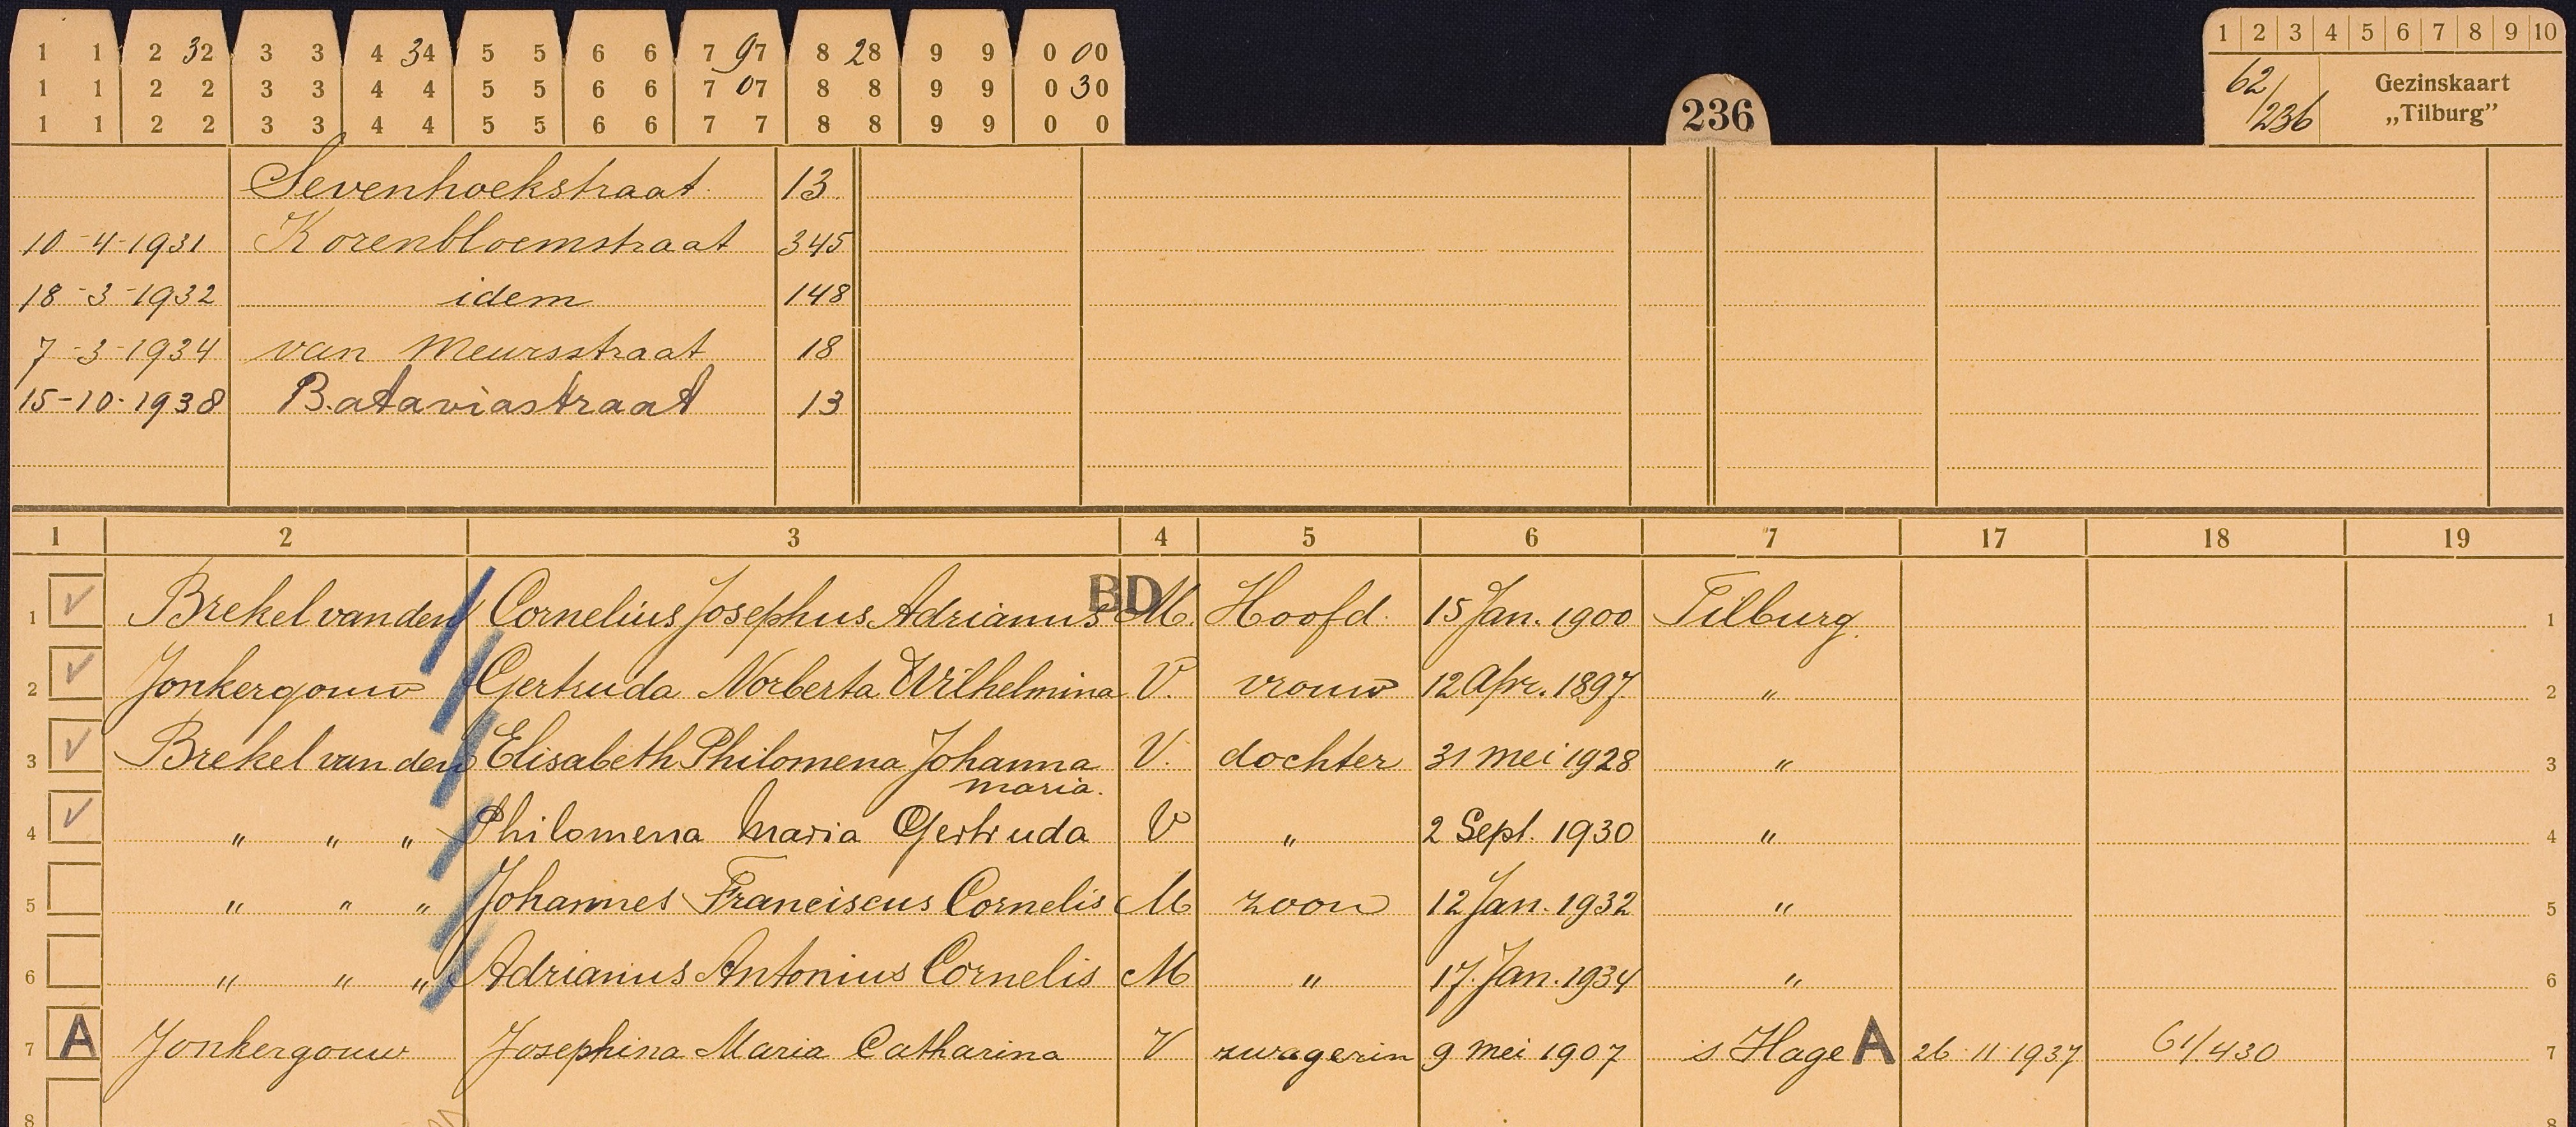 1 1 2 32 3 3 4 34 5 5 6 6 7 97 8 28 9 9 0 00
1 1 2 2 3 3 4 4 5 5 6 6 7 07 8 8 9 9 0 30
1 1 2 2 3 3 4 4 5 5 6 6 7 7 8 8 9 9 0 0
236
1 2 3 4 5 6 7 8 9 10
62/236 Gezinskaart
„Tilburg”
Sevenhoekstraat 13
10-4-1931 Korenbloemstraat 345
18-3-1932 idem 148
7-3-1934 van Meursstraat 18
15-10-1938 Bataviastraat 13
1 2 3 4 5 6 7 17 18 19
BD
1 Brekel van den Cornelius Josephus Adrianus M. Hoofd. 15 Jan. 1900 Tilburg. 1
2 Jonkergouw Gertruda Norberta Wilhelmina V. vrouw 12 Apr. 1897 " 2
3 Brekel van den Elisabeth Philomena Johanna V. dochter 31 Mei 1928 " 3
Maria.
4 " " " Philomena Maria Gertruda V " 2 Sept. 1930 " 4
5 " " " Johannes Franciscus Cornelis M zoon 12 Jan. 1932 " 5
6 " " " Adrianus Antonius Cornelis M " 17 Jan. 1934 " 6
7 A Jonkergouw Josephina Maria Catharina V zwagerin 9 Mei 1907 s Hage A 26 11 1937 61/430 7
8 8